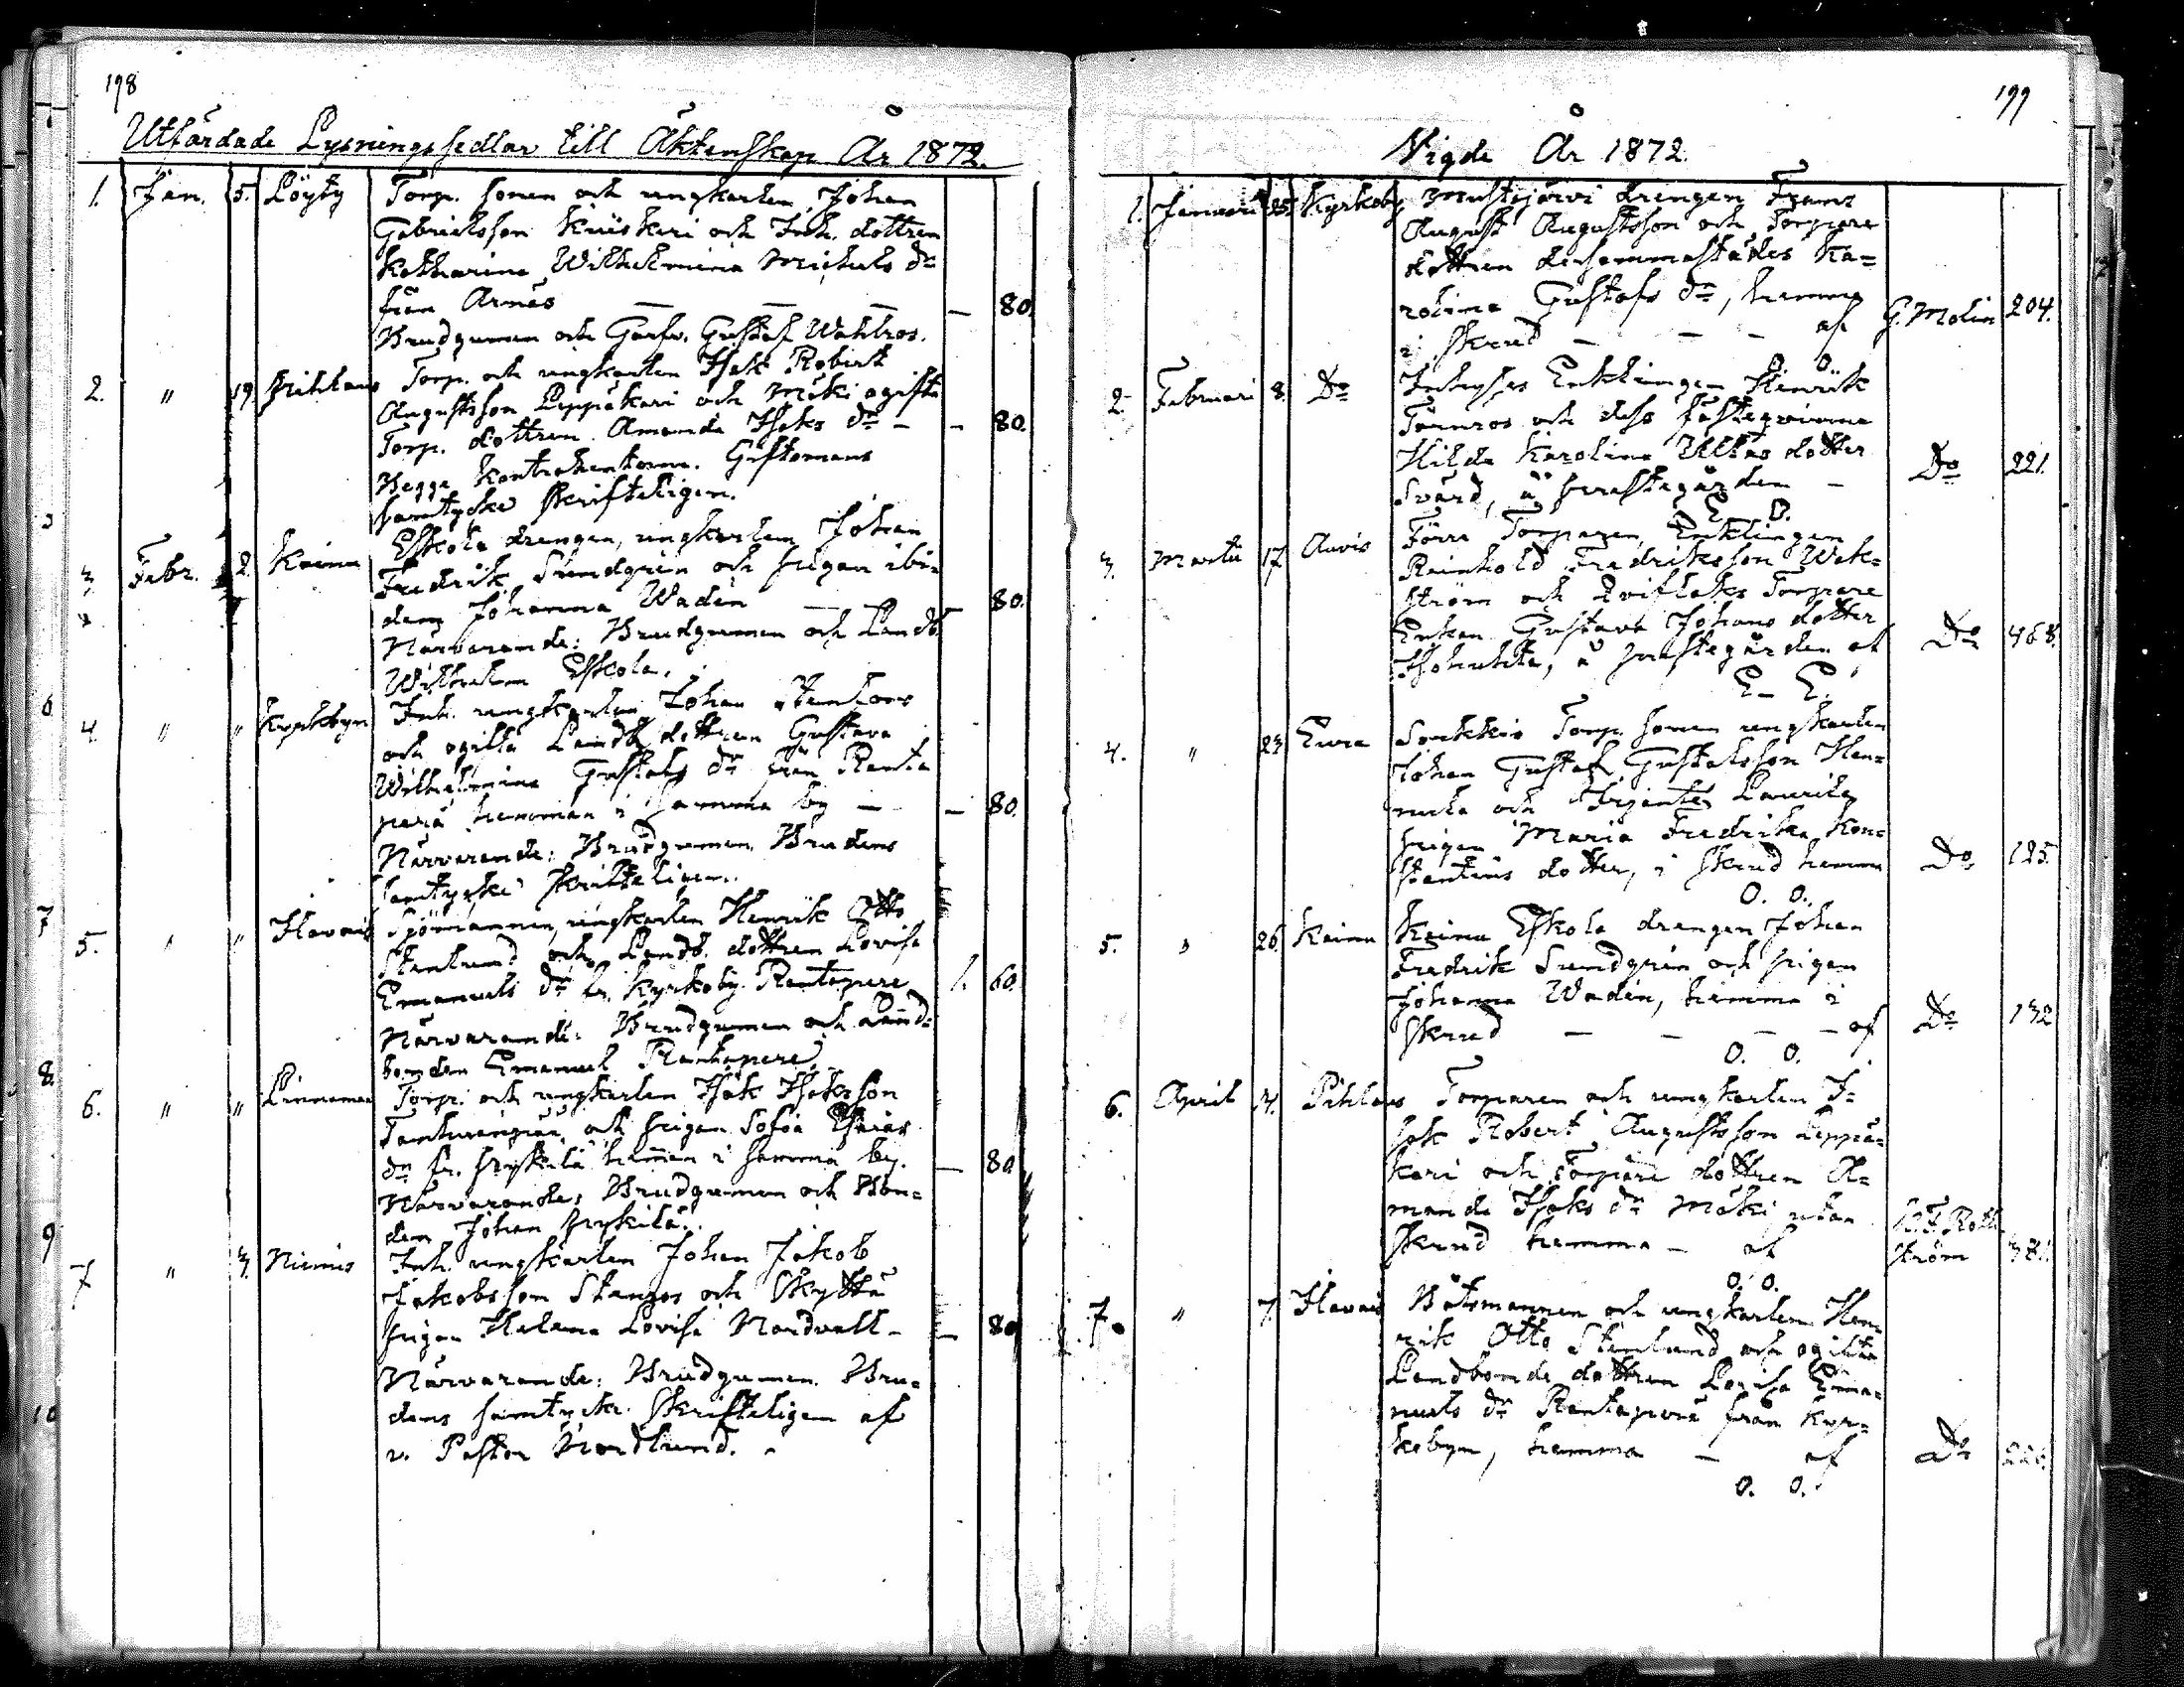 198
Utfärdade Lysningssedlar till Äktenskap År 1872.
1. Jan. 5. Löyty Torp. sonen och ungkarlen Johan
Gabrielsson Kriiskeri och Inh. dottren
Katharina Wilhelmina Michels dr
från Arnäs — — — — 80.
Brudgumen och Gustaf Wahlros.
2. " 19. Pihlaus Torp. och ungkarlen Isak Robert
Augustsson Leppäkari och Mäki ogifta
Torp. dottren Amanda Isaks dr — — 80.
Begge kontrahenterne. Giftomans
samtycke skrifteligen.
3. Febr. 2. Kaina Eskola drengen, ungkarlen Johan
Fredrik Sundgrén och pigan ibi-
dem Johanna Wadén — 80.
Närvarande: Brudgumen och Landb.
Wilhelm Eskola.
4. " " Kyrkobyn Inh. ungkarlen Johan Stenroos
och ogifta Landb. dottren Gustava
Wilhelmina Gustafs dr från Ranta
perä hemman i samma by — — 80.
Närvarande: Brudgumen. Brudens
samtycke skrifteligen.
5. " " Havais Sjömannen, ungkarlen Henrik Otto
Stenlund och Landb. dottren Lovisa
Emanuels dr fr. Kyrkoby Rantapere 1. 60.
Närvarande: Brudgumen och Land-
bonden Emanuel Rantapere.
6. " " Linnamaa Torp. och ungkarlen Isak Isaksson
och pigan Sofia Esaias
dr fr. Prykilä hemman i samma by. — 80.
Närvarande: Brudgumen och Bon-
den Johan Prykilä.
7 " 3. Niemis Inh. ungkarlen Johan Jakob
Jakobsson Stenros och Skyttä
pigan Helena Lovisa Nordvall — — 80
Närvarande: Brudgumen. Bru-
dens samtycke skrifteligen af
v. Pastor Nordlund.
199
Vigde År 1872.
1. Januari 25. Kyrkoby Mustajärvi drengen Frans
August Augustsson och Torpare
dottren dersammastädes Ka-
rolina Gustafs dr, hemma
i skrud — — — af G. Molin 204.
O. O.
2. Februari 8. Do Inhyses Enklingen Henrik
Törnros och dess fästeqvinna
Hilda Karolina Ullas dotter
Svärd, å prestegården — Do 221.
E. O.
3. Martii 17. Auvis Förre Torparen, Enklingen
Reinhold Fredriksson Wek-
ström och Torpare
Enkan Gustava Johans dotter
Isohuhta, å prestegården af Do 468.
E. E.
4. " 23. Eura Sorkkis Torp. sonen ungkarlen
Johan Gustaf Gustafsson Hen-
och Laurila
pigan Maria Fredrika Kon-
stantins dotter, i skrud hemma Do 125.
O. O.
5. " 26. Kaina Kaina Eskola drengen Johan
Fredrik Sundgrén och pigan
Johanna Wadén, hemma i
skrud — — — — af Do 132
O. O.
6. April 4. Pihlaus Torparen och ungkarlen I-
sak Robert Augustsson Leppä-
kari och Torpare dottren A-
manda Isaks dr Mäki, utan
skrud hemma — af Roth-
ström 381.
O. O.
7. " 7. Havais Båtsmannen och ungkarlen Hen-
rik Otto Stenlund och ogifta
Landbonde dottren Lovisa Ema-
nuels dr Rantaperä från Kyr-
kobyn, hemma — af Do 226.
O. O.